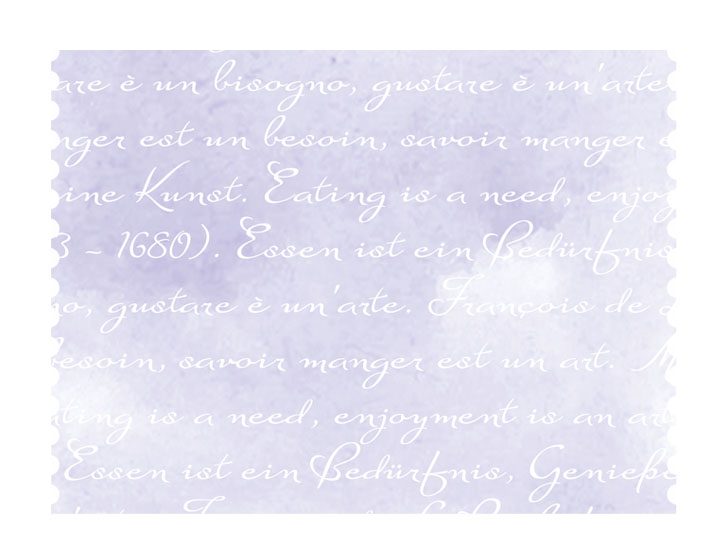 are è un bisogno, gustare è un'arte
nger est un besoin, savoir manger e
ine Kunst. Eating is a need, enjoy
3 - 1680). Essen ist ein Bedürfnis
no, gustare è un'arte. François de
besoin, savoir manger est un art. M
ating is a need, enjoyment is an art
Essen ist ein Bedürfnis, Genieße